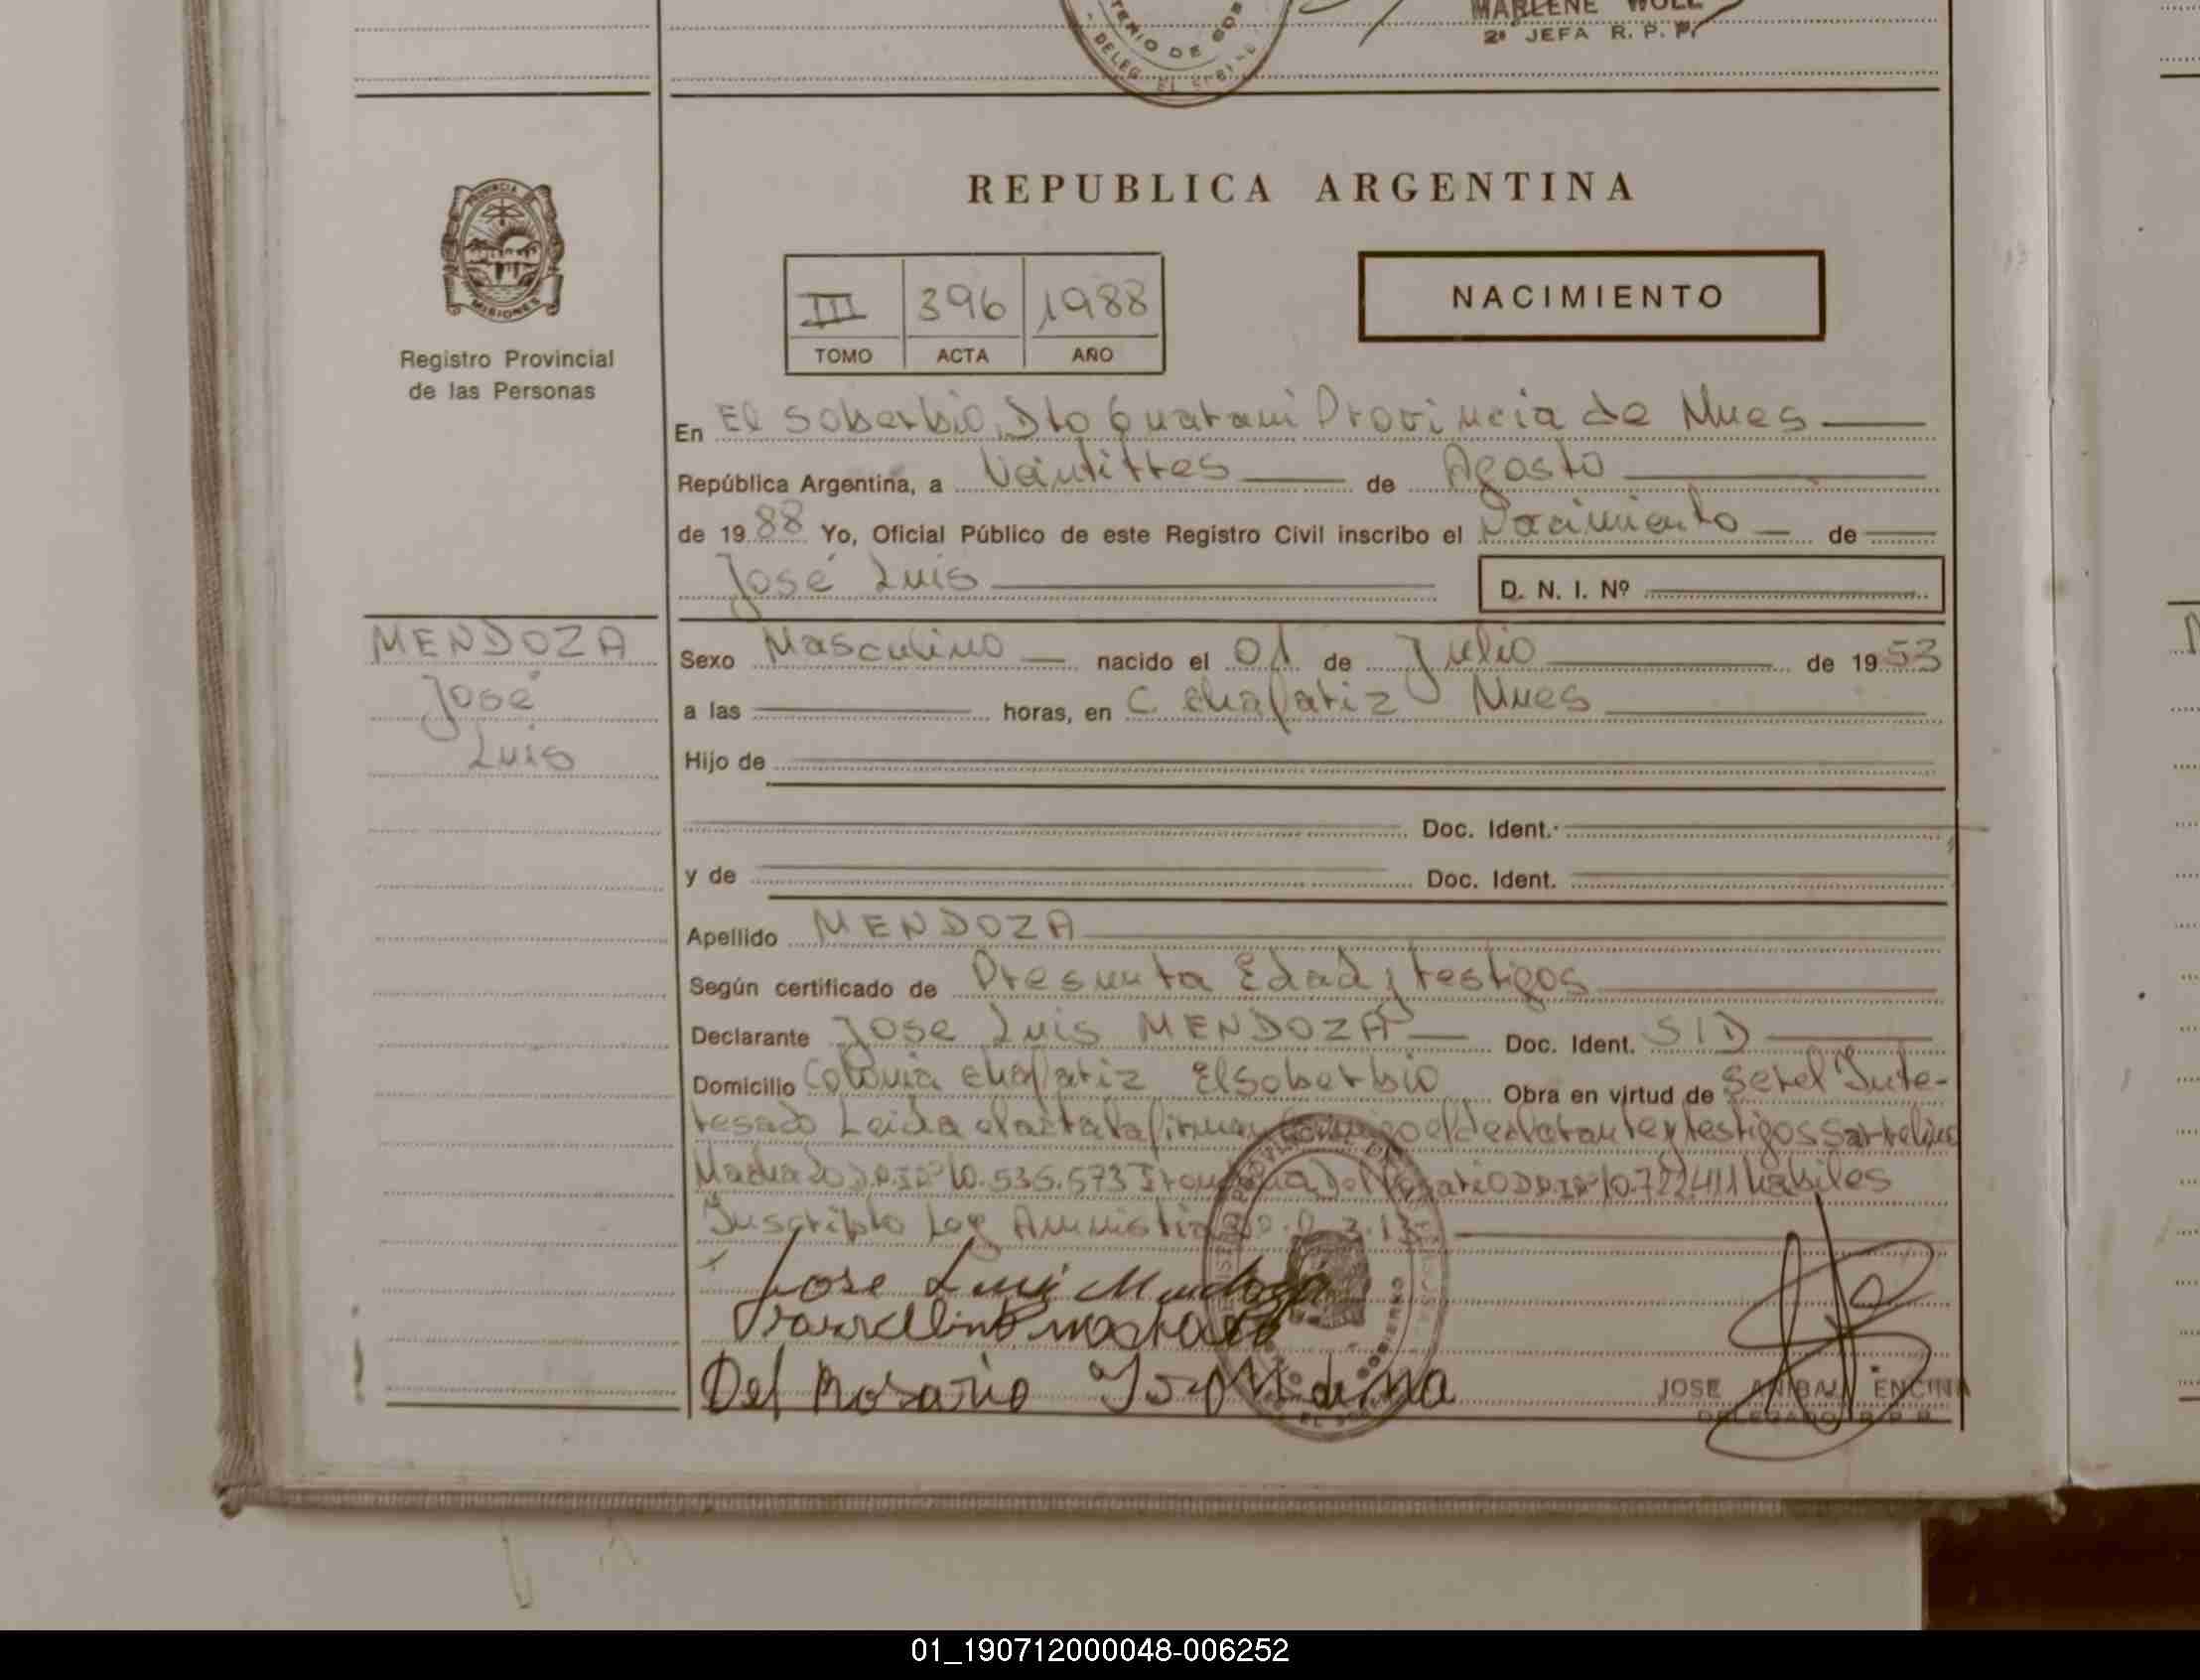 MARLENE WOLL
2ª JEFA R. P. P.
DELEG. EL
PROVINCIA DE
MISIONES
Registro Provincial
de las Personas
REPUBLICA ARGENTINA
III 396 1988
TOMO ACTA AÑO
NACIMIENTO
En El Soberbio, Dto Guarani Provincia de Mnes
República Argentina, a Veintitres de Agosto
de 1988 Yo, Oficial Público de este Registro Civil inscribo el Nacimiento de
José Luis
D. N. I. Nº
MENDOZA
José
Luis
Sexo Masculino nacido el 01 de Julio de 1953
a las horas, en C. Chafariz Mnes
Hijo de
Doc. Ident.
y de Doc. Ident.
Apellido MENDOZA
Según certificado de Presunta Edad y testigos
Declarante Jose Luis MENDOZA Doc. Ident. S/D
Domicilio Colonia Chafariz El Soberbio Obra en virtud de Ser el Inte-
resado Leida el acta la firman el declarante y testigos
Machado D.N.I Nº 10.535.573 Del Rosario D.N.I Nº 10.722.411 habiles
Inscripto Ley Amnistia
Jose Luis Mendoza
Del Rosario
JOSE ANIBAL ENCINA
DELEGADO R. P. P.
01_190712000048-006252